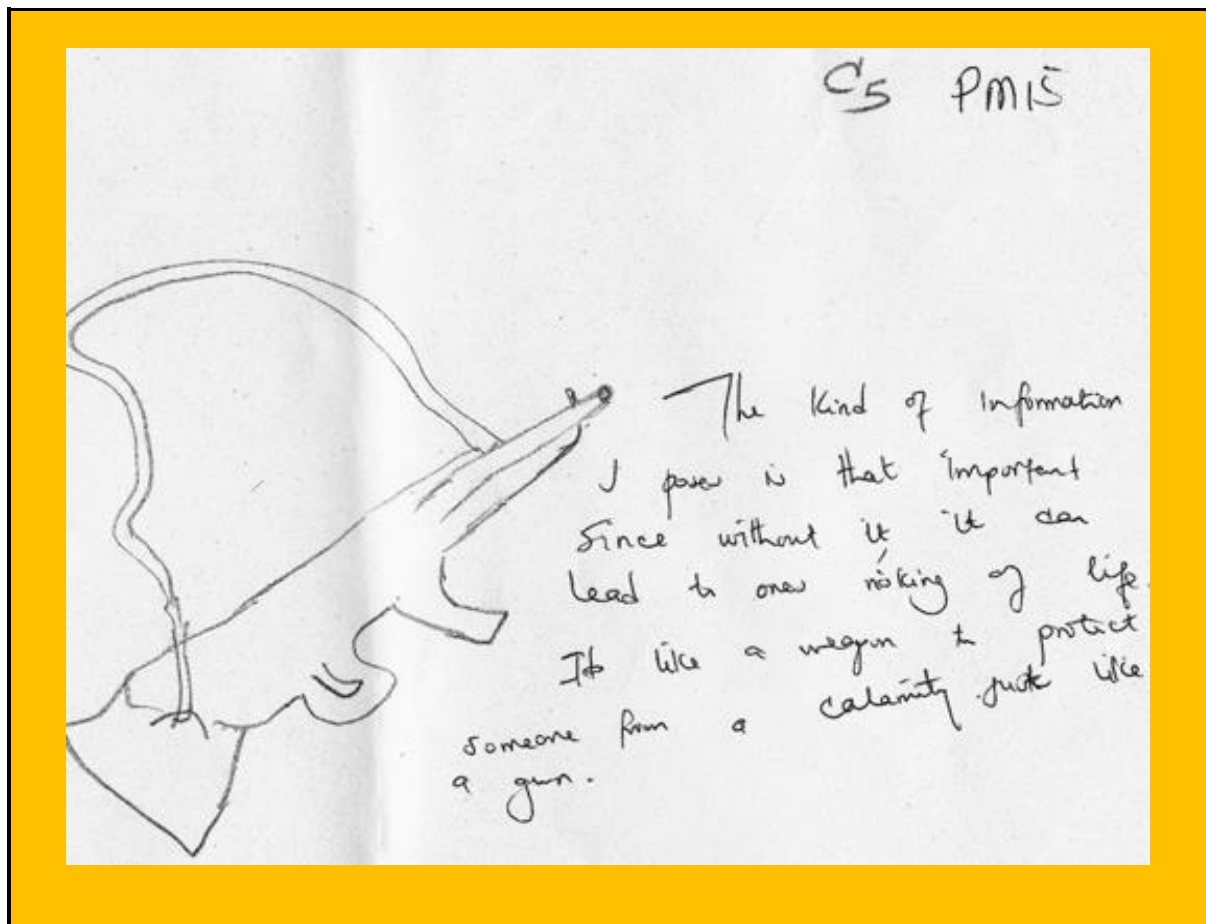 C5 PM15
The Kind of Information
I poses is that important
Since without it it can
lead to ones risking of life.
Its like a weapon to protect
someone from a calamity just like
a gun.